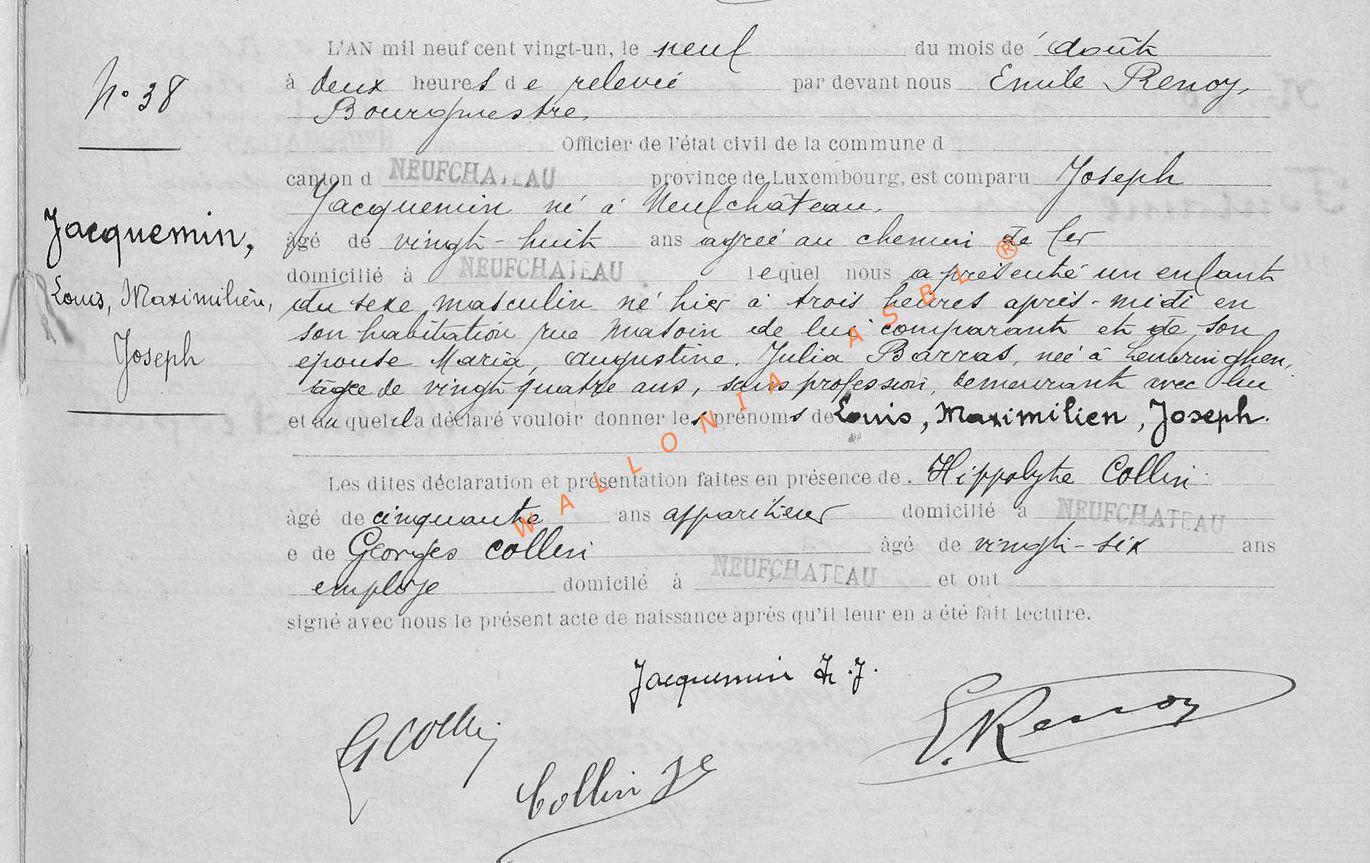 L'AN mil neuf cent vingt-un, le neuf du mois de août
N° 38
à deux heures de relevée par devant nous Emile Renoy,
Bourgmestre,
Officier de l'état civil de la commune d
canton d NEUFCHATEAU province de Luxembourg, est comparu Joseph
Jacquemin né à Neufchâteau,
Jacquemin,
Louis, Maximilien,
Joseph
âgé de vingt-huit ans agréé au chemin de fer
domicilié à NEUFCHATEAU lequel nous a présenté un enfant
du sexe masculin né hier à trois heures après-midi en
son habitation rue de lui comparant et de son
épouse Maria, Augustine, Julia Barras, née à
âgée de vingt-quatre ans, sans profession, demeurant avec lui
et auquel il a déclaré vouloir donner les prénoms de Louis, Maximilien, Joseph.
Les dites déclaration et présentation faites en présence de Hippolyte Collin
âgé de cinquante ans appariteur domicilié à NEUFCHATEAU
e de Georges Collin âgé de vingt-six ans
employe domicilé à NEUFCHATEAU et ont
signé avec nous le présent acte de naissance après qu'il leur en a été fait lecture.
Jacquemin J.
G Collin
Collin
E. Renoy
WALLONIA ASBL ®